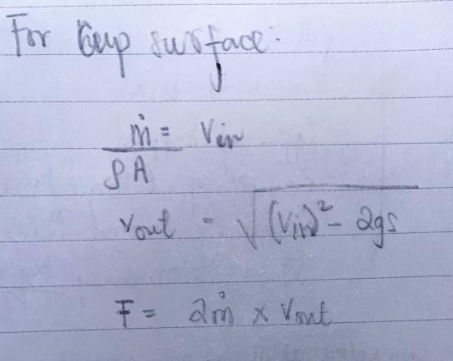 For Cup surface:
ṁ = Vin
ρA
Vout = √(Vin)² - 2gs
F = 2ṁ × Vout